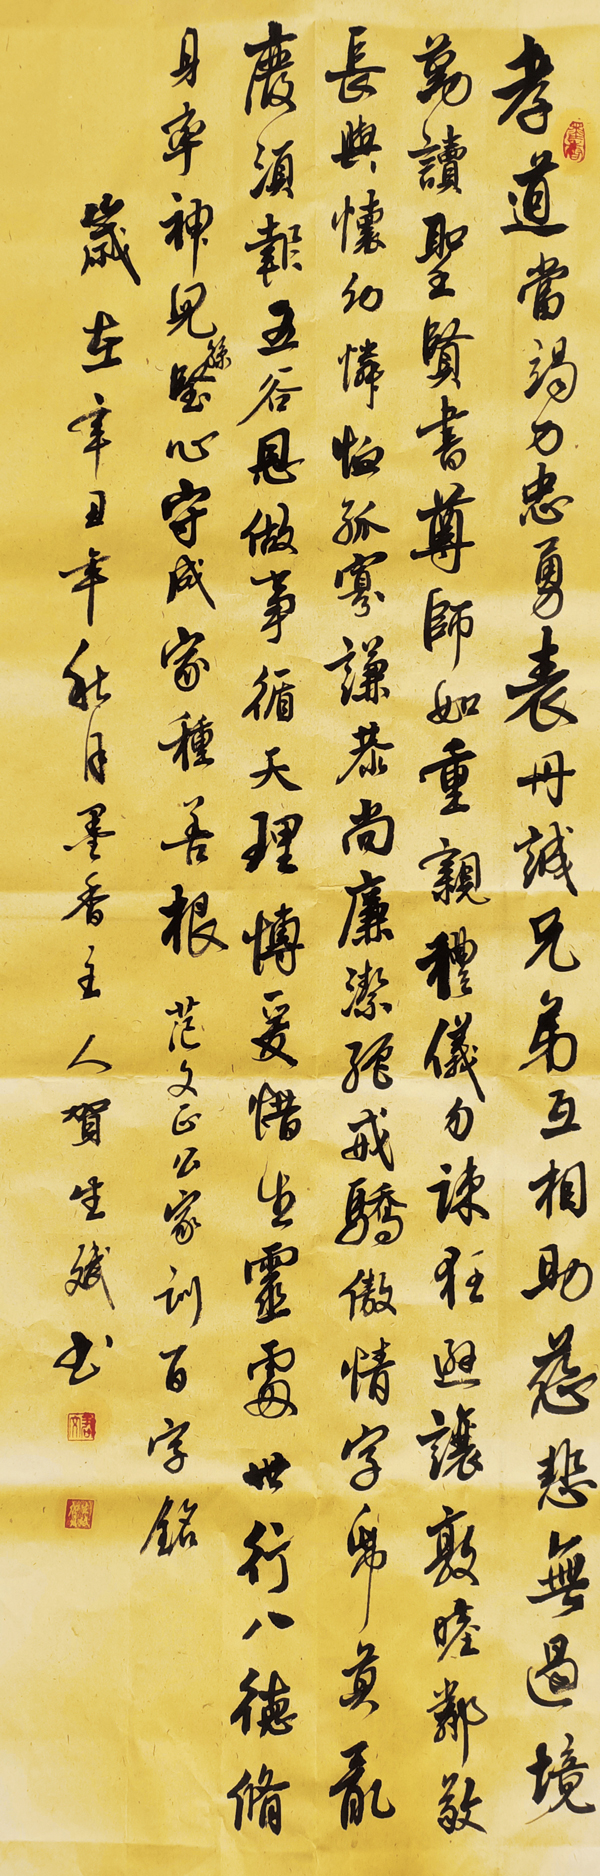 孝道當竭力忠勇表丹誠兄弟互相助慈悲無過境
勤讀聖賢書尊師如重親禮儀勿疎狂遜讓敦睦鄰敬
長與懷幼憐恤孤寡謙恭尚廉潔絕戒驕傲情字帋莫亂
廢須報五谷恩做事循天理博愛惜生靈處世行八德脩
身率神兒孫堅心守成家種善根 范文正公家訓百字銘
歲在辛丑年秋月墨香主人賀生斌书